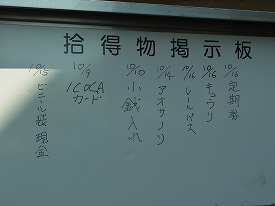 拾得物掲示板
10/5
ビニール袋現金
10/9
ICOCA
カード
10/10
小銭入れ
10/14
アオサノリ
10/16
レールパス
10/16
キュウリ
10/16
定期券